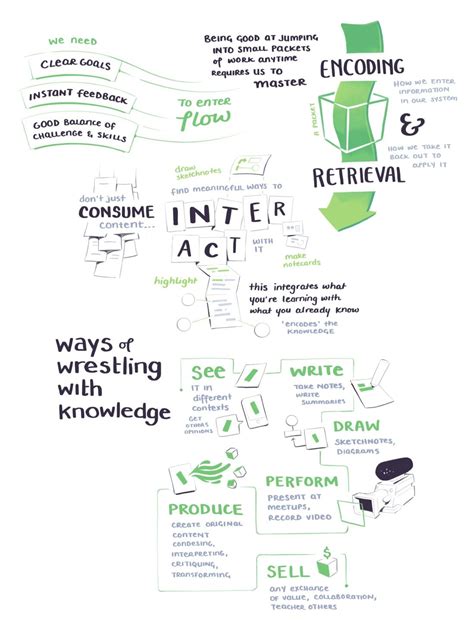 we need
CLEAR GOALS
INSTANT feedBACK
GOOD BALANCE of
CHALLENGE & SKILLS
TO ENTER
flow
BEING GOOD AT JUMPING
INTO SMALL PACKETS
of WORK ANYTIME
REQUIRES US TO
MASTER
ENCODING
HOW WE ENTER
INFORMATION
IN OUR SYSTEM
A PACKET
&
HOW WE TAKE IT
BACK OUT TO
APPLY IT
RETRIEVAL
draw
sketchnotes
FIND MEANINGFUL WAYS TO
don't just
CONSUME
content...
INTER
ACT
WITH
IT
make
notecards
highlight
this integrates what
you're learning with
what you already know
'encodes' the
KNOWLEDGE
ways of
wrestling
with
knowledge
SEE
IT IN
different
contexts
GET
OTHERS
OPINIONS
WRITE
TAKE NOTES,
WRITE
SUMMARIES
DRAW
SKETCHNOTES,
DIAGRAMS
PERFORM
PRESENT AT
MEETUPS,
RECORD VIDEO
PRODUCE
CREATE ORIGINAL
CONTENT
CONDESING,
INTERPRETING,
CRITIQUING,
TRANSFORMING
SELL
$
ANY EXCHANGE
OF VALUE, COLLABORATION,
TEACHER OTHERS